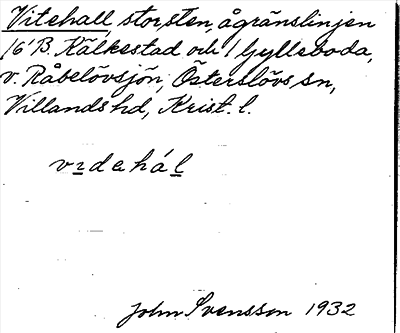 Vitehall, storsten, å gränslinjen
16 B. Kälkestad och 1 Gylleboda,
v. Råbelövsjön, Österslövs sn,
Villands hd, Krist. l.
vɪdahál
John Svensson 1932